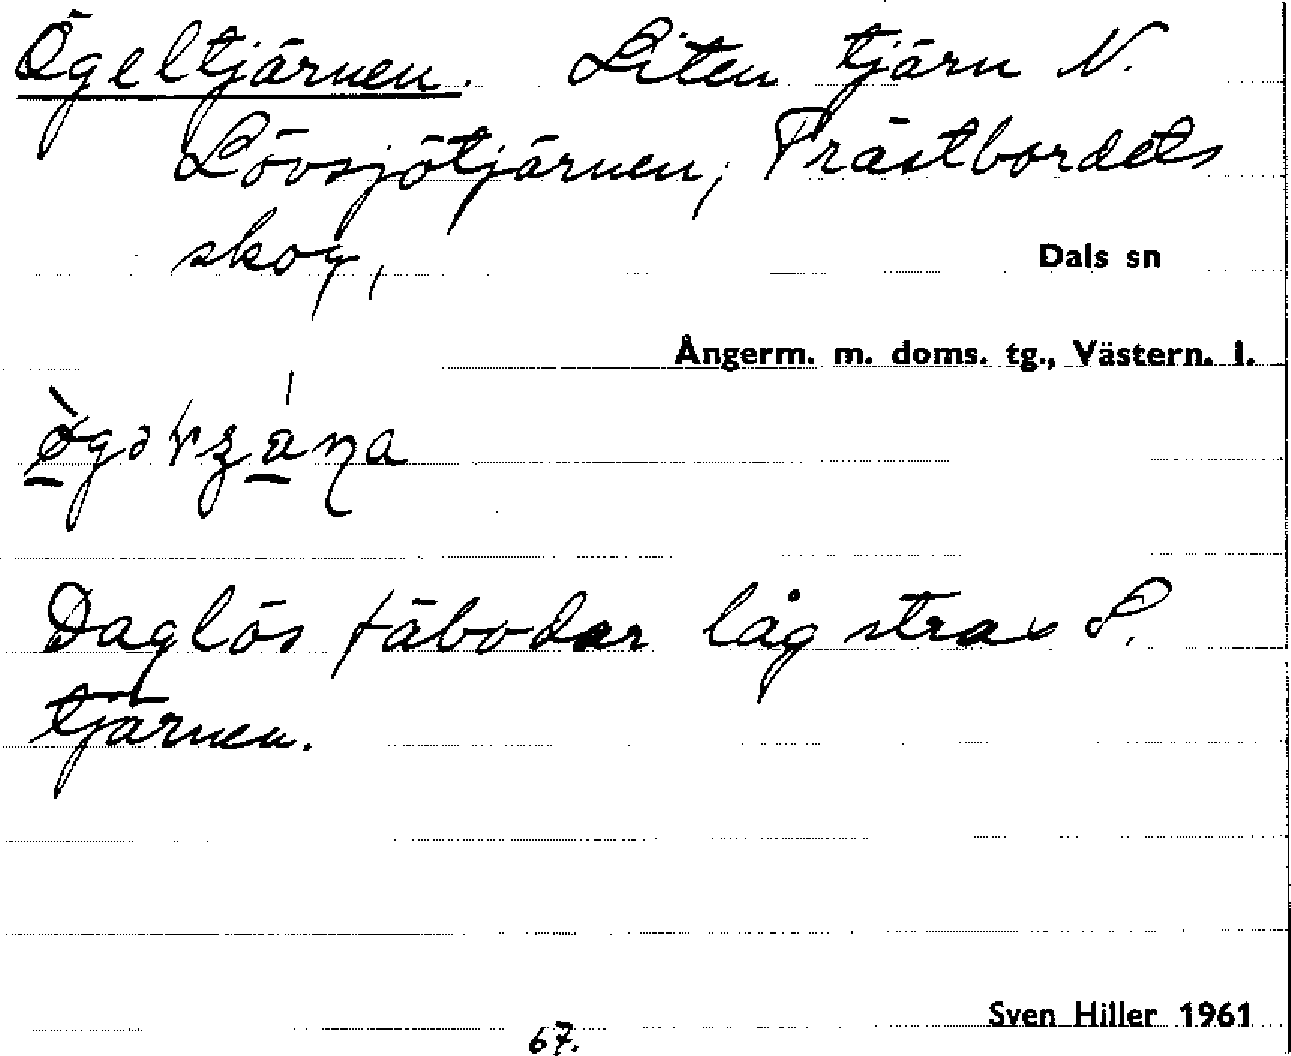 Ögeltjärnen. Liten tjärn N.
Lövsjötjärnen, Prästbordets
skog,
Dals sn
Ångerm. m. doms. tg., Västern. l.
Daglös fäbodar låg strax S.
tjärnen.
Sven Hiller 1961
67.